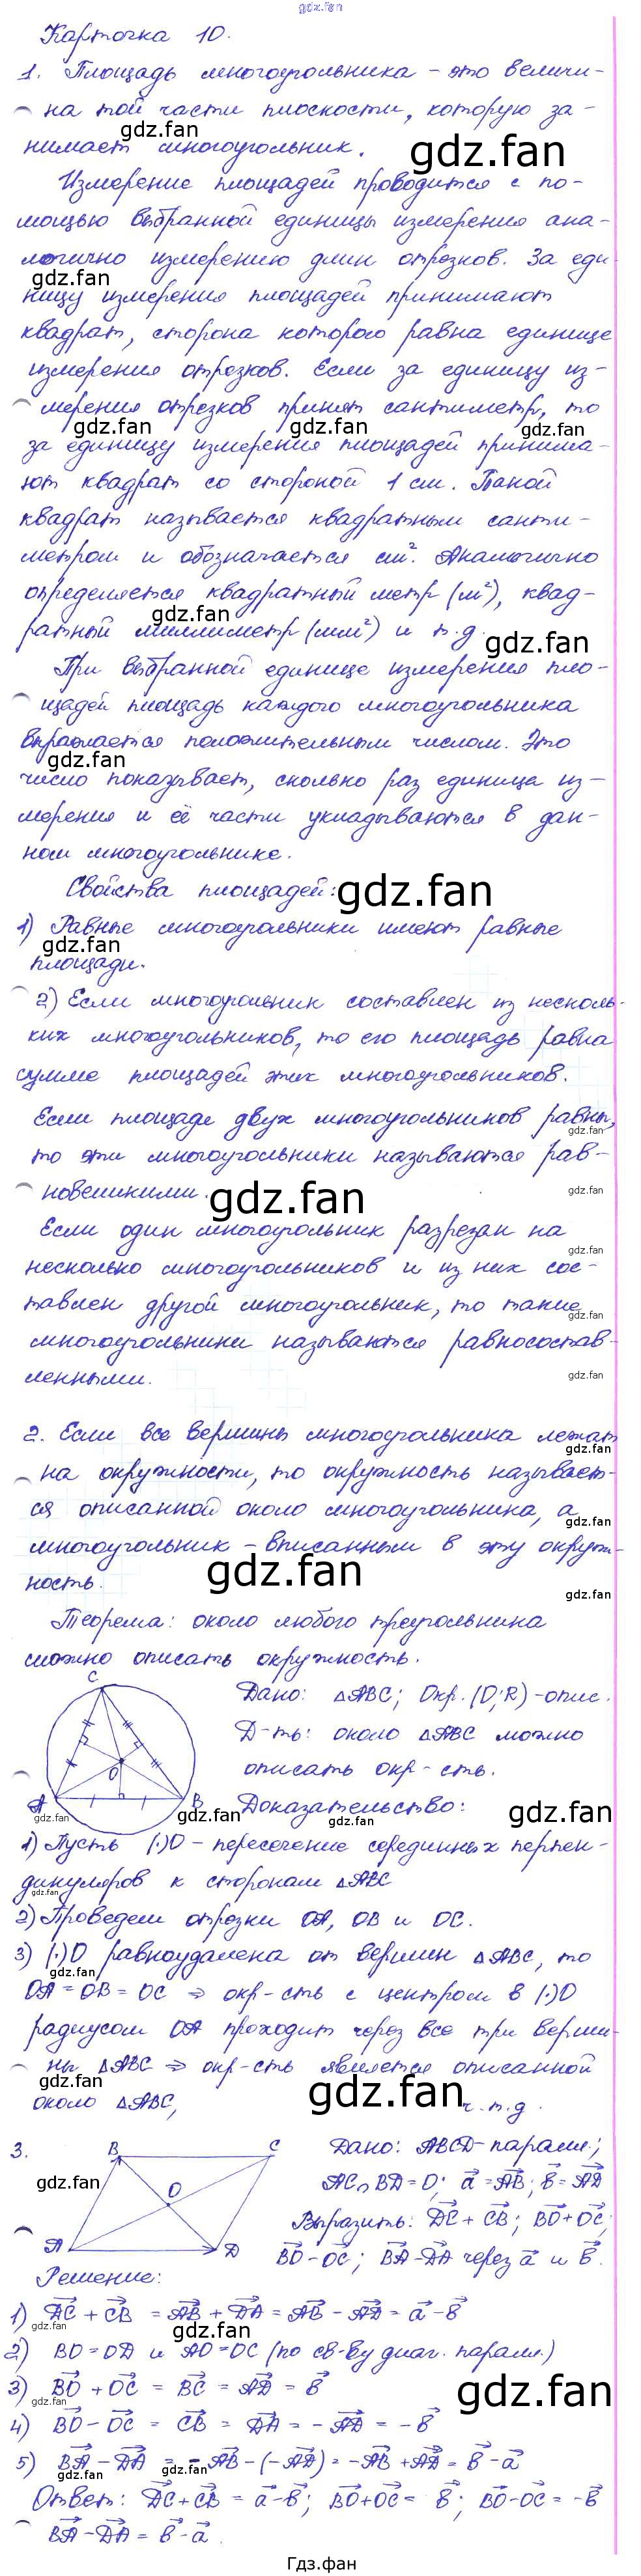 gdz.fan
Карточка 10.
1. Площадь многоугольника – это величи-
на той части плоскости, которую за-
gdz.fan
нимает многоугольник.
gdz.fan
Измерение площадей проводится с по-
мощью выбранной единицы измерения ана-
логично измерению длин отрезков. За еди-
gdz.fan
ницу измерения площадей принимают
квадрат, сторона которого равна единице
измерения отрезков. Если за единицу из-
мерения отрезков принят сантиметр, то
gdz.fan gdz.fan gdz.fan
за единицу измерения площадей принима-
ют квадрат со стороной 1 см. Такой
квадрат называется квадратным санти-
метром и обозначается см². Аналогично
определяется квадратный метр (м²), квад-
gdz.fan
ратный миллиметр (мм²) и т.д.
gdz.fan
При выбранной единице измерения пло-
щадей площадь каждого многоугольника
выражается положительным числом. Это
gdz.fan
число показывает, сколько раз единица из-
мерения и её части укладываются в дан-
ном многоугольнике.
Свойства площадей:
gdz.fan
1) Равные многоугольники имеют равные
gdz.fan
площади.
2) Если многоугольник составлен из несколь-
ких многоугольников, то его площадь равна
сумме площадей этих многоугольников.
Если площади двух многоугольников равны,
gdz.fan
то эти многоугольники называются рав-
новеликими.
gdz.fan
gdz.fan
Если один многоугольник разрезан на
gdz.fan
несколько многоугольников и из них сос-
тавлен другой многоугольник, то такие
gdz.fan
многоугольники называются равносостав-
ленными.
gdz.fan
2. Если все вершины многоугольника лежат
gdz.fan
на окружности, то окружность называет-
ся описанной около многоугольника, а
gdz.fan
многоугольник – вписанным в эту окруж-
ность.
gdz.fan
gdz.fan
Теорема: около любого треугольника
можно описать окружность.
C
O
A
B
Дано: △ABC; Окр.(O;R)-опис.
Д-ть: около △ABC можно
описать окр-сть.
Доказательство:
gdz.fan gdz.fan gdz.fan gdz.fan
1) Пусть (·)O – пересечение серединных перпен-
дикуляров к сторонам △ABC
gdz.fan
2) Проведем отрезки OA, OB и OC.
3) (·)O равноудалена от вершин △ABC, то
gdz.fan
OA = OB = OC ⇒ окр-сть с центром в (·)O
радиусом OA проходит через все три верши-
ны △ABC ⇒ окр-сть является описанной
gdz.fan
около △ABC,
gdz.fan
ч.т.д.
3.
B
C
O
A
D
gdz.fan
Дано: ABCD – паралл.;
AC∩BD=O; a⃗ = AB⃗; b⃗ = AD⃗
Выразить: DC⃗ + CB⃗; BO⃗+OC⃗;
BO⃗ – OC⃗; BA⃗ – DA⃗ через a⃗ и b⃗.
Решение:
1) DC⃗ + CB⃗ = AB⃗ + DA⃗ = AB⃗ – AD⃗ = a⃗ – b⃗
gdz.fan gdz.fan
2) BO = OD и AO = OC (по св-ву диаг. паралл.)
3) BO⃗ + OC⃗ = BC⃗ = AD⃗ = b⃗
gdz.fan gdz.fan
4) BO⃗ – OC⃗ = CB⃗ = DA⃗ = – AD⃗ = – b⃗
5) BA⃗ – DA⃗ = – AB⃗ – (–AD⃗) = – AB⃗ + AD⃗ = b⃗ – a⃗
gdz.fan gdz.fan
Ответ: DC⃗+CB⃗ = a⃗ – b⃗; BO⃗+OC⃗ = b⃗; BO⃗ – OC⃗ = – b⃗
BA⃗ – DA⃗ = b⃗ – a⃗.
Гдз.фан